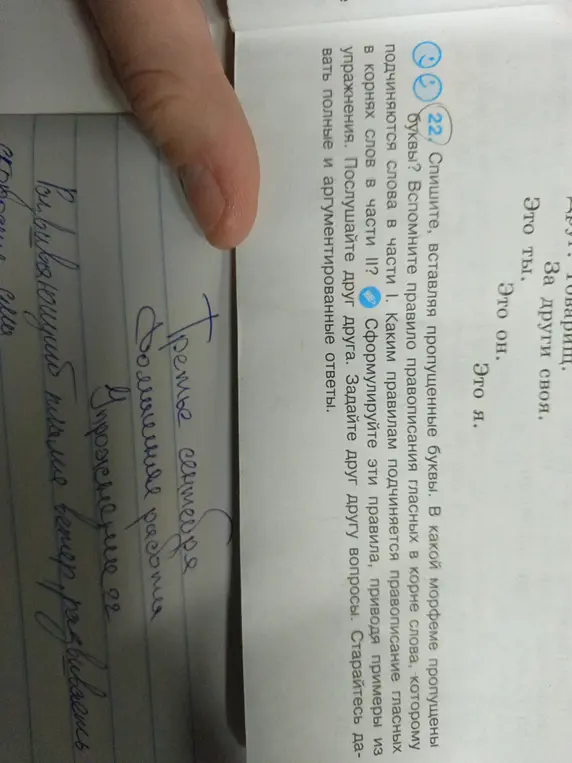 Друг. Товарищ.
За други своя.
Это ты.
Это он.
Это я.
22. Спишите, вставляя пропущенные буквы. В какой морфеме пропущены
буквы? Вспомните правило правописания гласных в корне слова, которому
подчиняются слова в части I. Каким правилам подчиняется правописание гласных
в корнях слов в части II? Сформулируйте эти правила, приводя примеры из
упражнения. Послушайте друг друга. Задайте друг другу вопросы. Старайтесь да-
вать полные и аргументированные ответы.
Третье сентября
Домашняя работа
Упражнение 22
пламя ветер, развивать